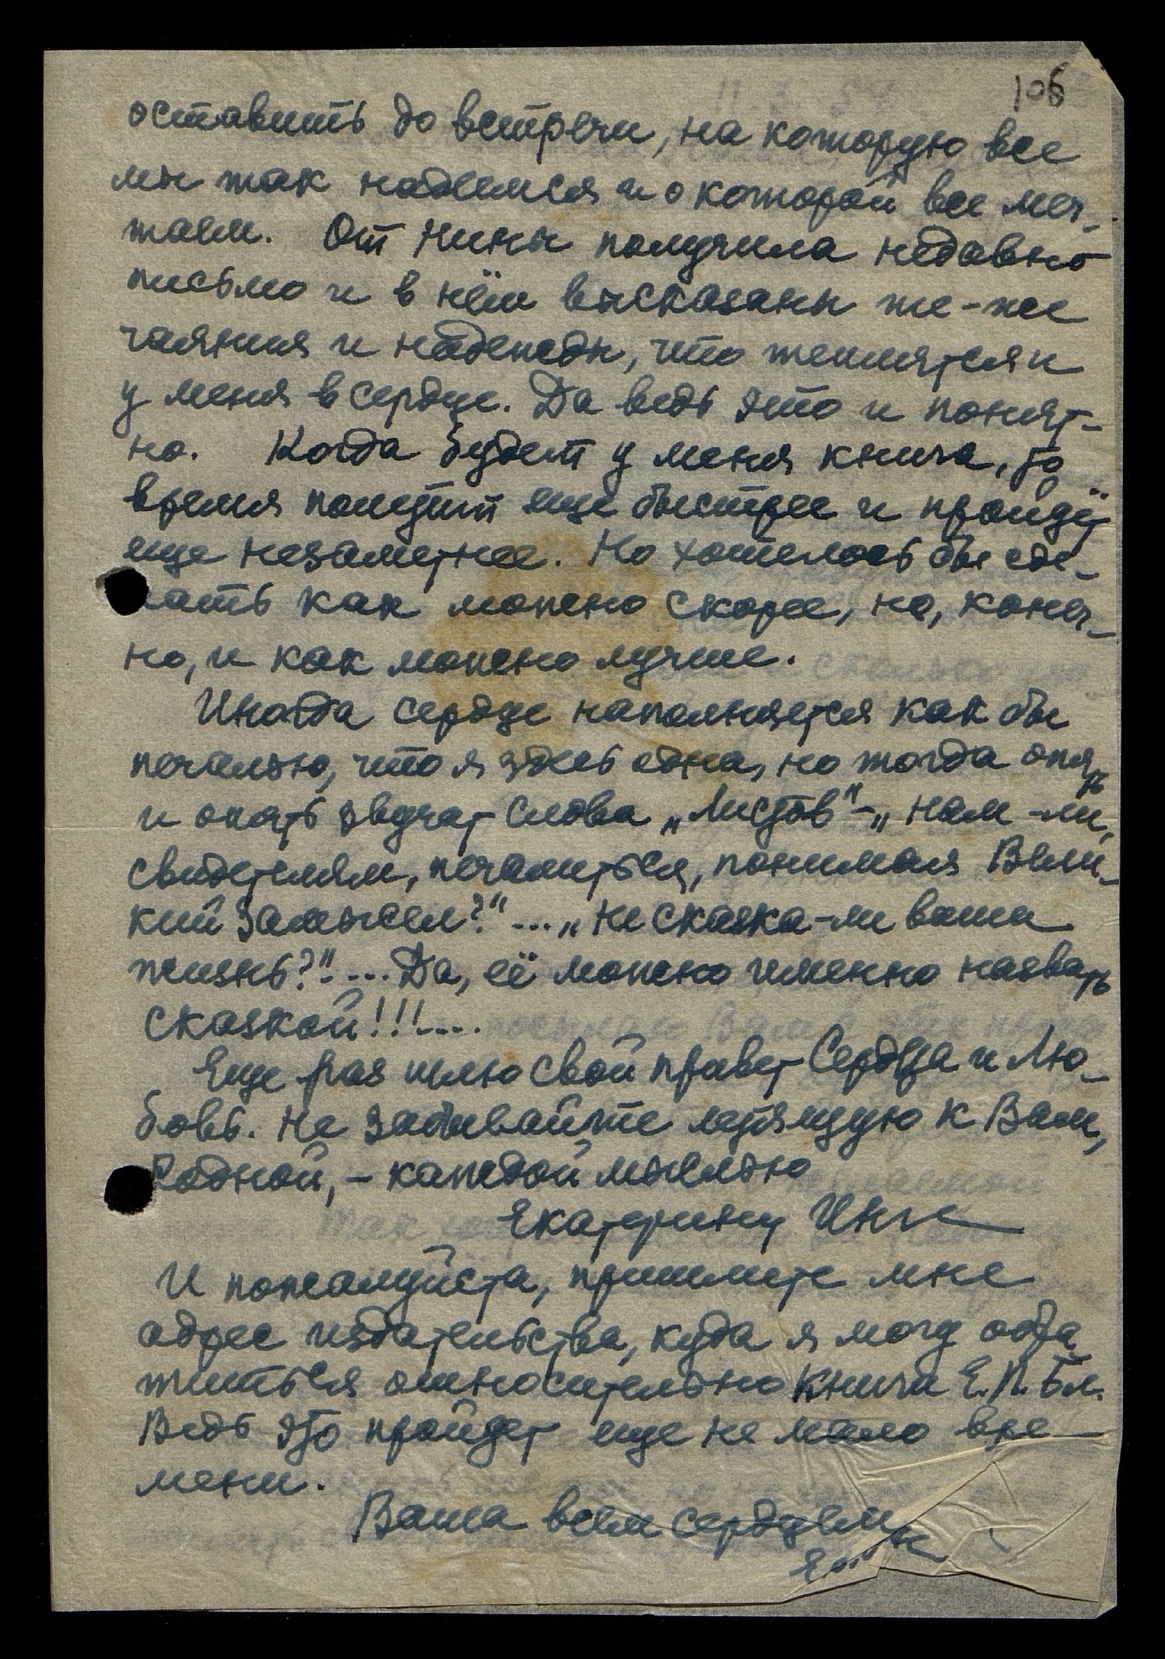 106
оставить до встречи, на которую все
мы так надеемся и о которой все меч-
таем. От Нины получила недавно
письмо и в нём высказаны те-же
чаяния и надежды, что теплятся и
у меня в сердце. Да ведь это и понят-
но. Когда будет у меня книга, то
время полетит еще быстрее и пройдёт
еще незаметнее. Но хотелось бы сде-
лать как можно скорее, но, конеч-
но, и как можно лучше.
Иногда сердце наполняется как бы
печалью, что я здесь одна, но тогда опять
и опять звучат слова „Листов" - „Нам-ли,
свидетелям, печалиться, понимая Вели-
кий Замысел?"... „Не сказка-ли ваша
жизнь?"... Да, её можно именно назвать
сказкой!!!....
Еще раз шлю свой привет Сердца и Лю-
бовь. Не забывайте летящую к Вам,
Родной, - каждой мыслью
Екатерину Инге
И пожалуйста, пришлите мне
адрес издательства, куда я могу обра
титься относительно книги Е.П.Бл.
Ведь это пройдет еще не мало вре-
мени.
Ваша всем сердцем